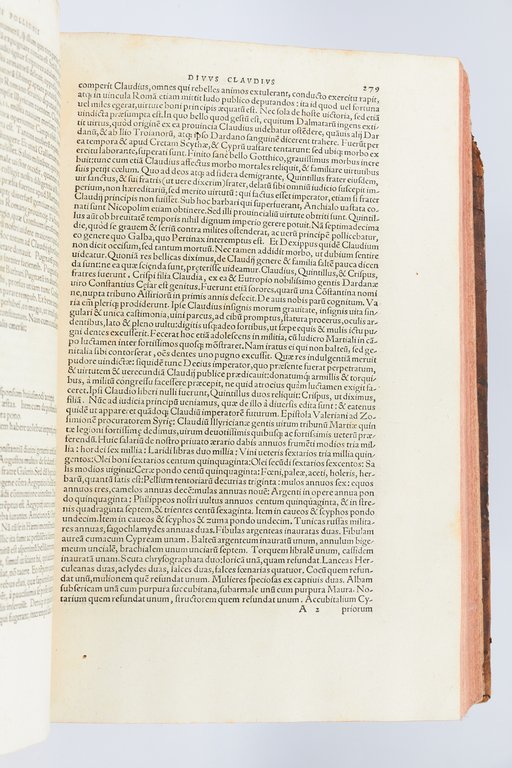 DIVVS CLAVDIVS
279
comperit Claudius, omnes qui rebelles animos extulerant, conducto exercitu rapit,
atq; in uincula Romã etiam mittit ludo publico deputandos: ita id quod uel fortuna
uel miles egerat, uirtute boni principis æquatũ est. Nec sola de hoste uictoria, sed etiã
uindicta præsumpta est. In quo bello quod gestũ est, equitum Dalmatarũ ingens exti-
tit uirtus, quod originẽ ex ea prouincia Claudius uidebatur ostẽdere, quãuis alij Dar
danũ, & ab Ilio Troianorũ, atq; ipso Dardano sanguinẽ dicerent trahere. Fuerũt per
ea tempora & apud Cretam Scythæ, & Cyprũ uastare tentarunt: sed ubiq; morbo ex
ercitu laborante, superati sunt. Finito sanè bello Gotthico, grauissimus morbus incre
buit: tunc cum etiã Claudius affectus morbo mortales reliquit, & familiare uirtutibus
suis petijt cœlum. Quo ad deos atq; ad sidera demigrante, Quintillus frater eiusdem,
uir sanctus, & sui fratris (ut uere dixerim) frater, delatũ sibi omniũ iudicio suscepit im-
perium, non hæreditariũ, sed merito uirtutũ: qui factus esset imperator, etiam si frater
Claudij principis non fuisset. Sub hoc barbari qui superfuerant, Anchialo uastata co-
nati sunt Nicopolim etiam obtinere. Sed illi prouincialiũ uirtute obtriti sunt. Quintil-
lus aũt ob breuitatẽ temporis nihil dignum imperio gerere potuit. Nã septimadecima
die, quòd se grauem & seriũ contra milites ostenderat, ac uerũ principẽ pollicebatur,
eo genere quo Galba, quo Pertinax interemptus est. Et Dexippus quidẽ Claudium
non dicit occisum, sed tantum mortuũ. Nec tamen addidit morbo, ut dubium sentire
uideatur. Quoniã res bellicas diximus, de Claudij genere & familia saltẽ pauca dicen
da sunt: ne ea quæ scienda sunt, præterisse uideamur. Claudius, Quintillus, & Crispus,
fratres fuerunt. Crispi filia Claudia, ex ea & Eutropio nobilissimo gentis Dardanæ
uiro Constantius Cæsar est genitus. Fuerunt etiã sorores. quarũ una Cõstantina nomi
ne, nupta tribuno Assyriorũ in primis annis defecit. De auis nobis parũ cognitum. Va
ria em̃ pleriq; prodiderunt. Ipse Claudius insignis morum grauitate, insignis uita sin-
gulari & unica castimonia, uini parcus, ad cibũ promptus, statura procerus, oculis ar-
dentibus, lato & pleno uultu, digitis usq; adeo fortibus, ut sæpe equis & mulis ictu pu-
gni dentes excusserit. Fecerat hoc etiã adolescens in militia, cũ ludicro Martiali in cã-
po luctamen inter fortissimos quosq; mõstraret. Nam iratus ei qui non balteũ, sed ge-
nitalia sibi contorserat, oẽs dentes uno pugno excussit. Quæ res indulgentiã meruit
pudoræ uindictæ: siquidẽ tunc Decius imperator, quo præsente fuerat perpetratum,
& uirtutem & uerecundiã Claudij publice prædicauit: donatumq; armillis & torqui-
bus, à militũ congressu facessere præcepit, ne quid atrocius quàm luctamen exigit fa-
ceret. Ipsi Claudio liberi nulli fuerunt, Quintillus duos reliquit: Crispus, ut diximus,
filiã. Nũc ad iudicia principũ ueniamus, quæ de illo à diuersis edita sunt: & eatenus
quidẽ ut appareret quãdoq; Claudiũ imperatorẽ futurum. Epistola Valeriani ad Zo-
simionẽ procuratorem Syriæ: Claudiũ Illyricianæ gentis uirum tribunũ Martiæ quin
tæ legioni fortissimæ dedimus, uirum deuotissimis quibusq; ac fortissimis ueterũ præ-
ferendũ. Huic salariũ de nostro priuato ærario dabis annuos frumẽti modios tria mil-
lia: hordei sex millia: Laridi libras duo millia: Vini ueteris sextarios tria millia quin-
gentos: Olei boni sextarios centum quinquaginta: Olei secũdi sextarios sexcentos: Sa
lis modios uiginti: Ceræ pondo centũ quinquaginta: Fœni, paleæ, aceti, holeris, her-
barũ, quantũ satis est: Pellium tentoriarũ decurias triginta: mulos annuos sex: equos
annuos tres, camelos annuos decẽ: mulas annuas nouẽ: Argenti in opere annua pon
do quinquaginta: Philippeos nostri uultus annuos centum quinquaginta, & in stre-
nis quadraginta septem, & trientes centũ sexaginta. Item in caucos & scyphos pondo
undecim. Item in caucos & scyphos & zuma pondo undecim. Tunicas russas milita-
res annuas, sagochlamydes annuas duas. Fibulas argenteas inauratas duas. Fibulam
aurea cumacum Cypream unam. Balteũ argenteum inauratũ unum, annulum bige-
meum uncialẽ, brachialem unum unciarũ septem. Torquem libralẽ unum, cassidem
inauratã unam. Scuta chrysographata duo loricã unã, quam refundat. Lanceas Her-
culeanas duas, aclydes duas, falces duas, falces fœnarias quatuor. Cocũ quem refun-
dat unũ, mulionem quẽ refundat unum. Mulieres speciosas ex captiuis duas. Albam
subsericam unã cum purpura succubitana, subarmale unũ cum purpura Maura. No-
tarium quem refundat unum, structorem quem refundat unum. Accubitalium Cy-
A 2 priorum